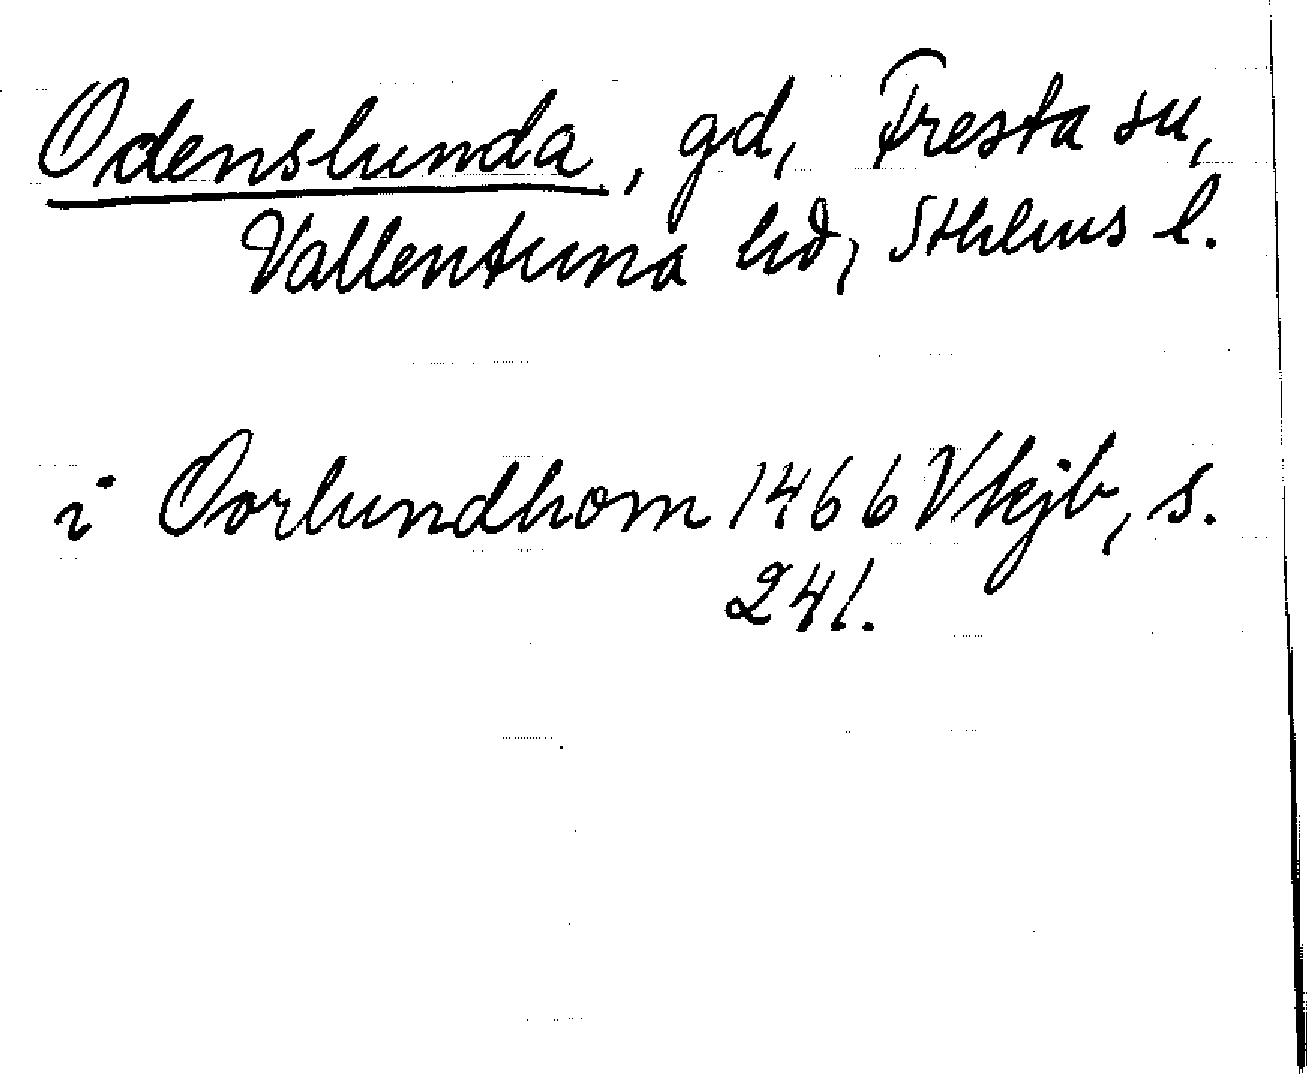 Odenslunda, gd, Fresta sn,
Vallentuna hd, Sthlms l.
i Oorlundhom 1466 Vkjb, s.
241.